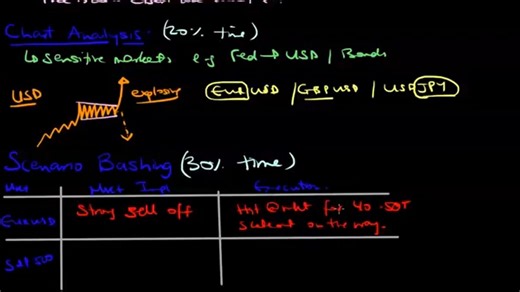 Chart Analysis: (20% time)
↳ sensitive markets e.g Fed → USD / Bonds
USD
explosive
EURUSD / GBPUSD / USDJPY
Scenario Bashing (30% time)
Mkt
Mkt Imp
Execution
EURUSD
Strong sell off
Hit @ mkt for 40-50T
Scale out on the way.
S&P 500